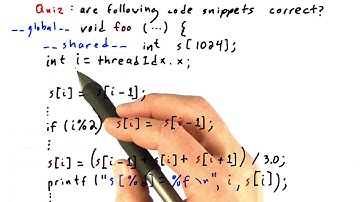 Quiz: are following code snippets correct?
__global__ void foo (...) {
__shared__ int s[1024];
int i = threadIdx.x;
s[i] = s[i-1];
if (i%2) s[i] = s[i-1];
s[i] = (s[i-1] + s[i] + s[i+1]) / 3.0;
printf ("s[%d]=%f\n", i, s[i]);